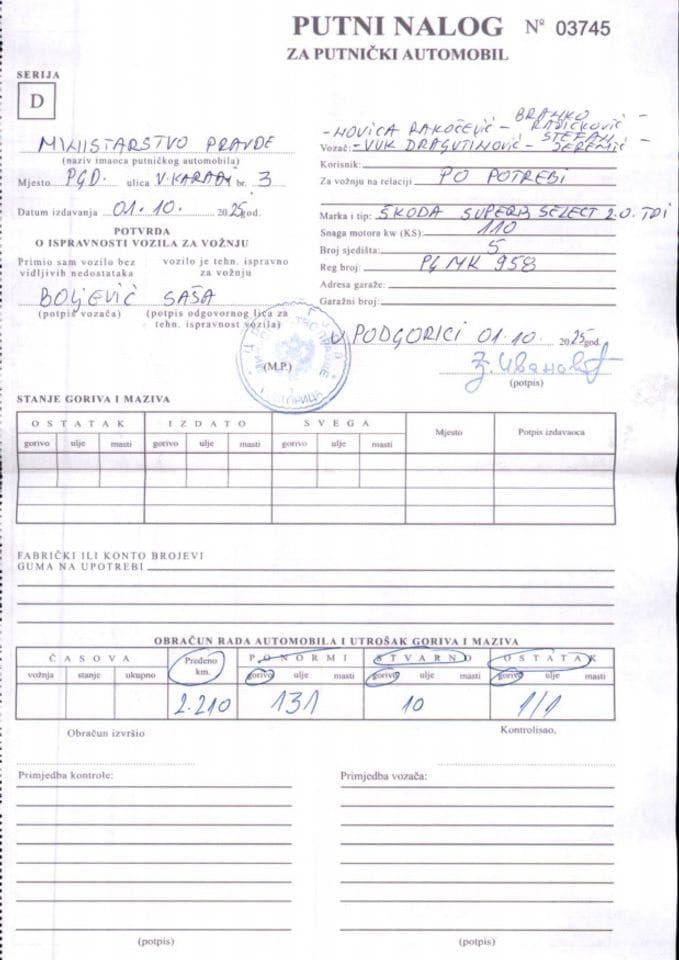 PUTNI NALOG Nº 03745
ZA PUTNIČKI AUTOMOBIL
SERIJA
D
MINISTARSTVO PRAVDE
(naziv imaoca putničkog automobila)
Mjesto PGD. ulica V. KARADŽ br. 3
Datum izdavanja 01.10. 2025 god.
POTVRDA
O ISPRAVNOSTI VOZILA ZA VOŽNJU
Primio sam vozilo bez vidljivih nedostataka
vozilo je tehn. ispravno za vožnju
BOLJEVIĆ SAŠA
(potpis vozača) (potpis odgovornog lica za tehn. ispravnost vozila)
BRANKO -
-NOVICA RAKOČEVIĆ - RADIČKOVIĆ
STEFAN -
Vozač: -VUK DRAGUTINOVIĆ - JEREMIĆ
Korisnik:
Za vožnju na relaciji PO POTREBI
Marka i tip: ŠKODA SUPERB SELECT 2.0. TDI
Snaga motora kw (KS): 110
Broj sjedišta: 5
Reg broj: PG MK 958
Adresa garaže:
Garažni broj:
(M.P.)
U PODGORICI 01.10. 2025 god.
(potpis)
STANJE GORIVA I MAZIVA
OSTATAK IZDATO SVEGA Mjesto Potpis izdavaoca
gorivo ulje masti gorivo ulje masti gorivo ulje masti
FABRIČKI ILI KONTO BROJEVI
GUMA NA UPOTREBI
OBRAČUN RADA AUTOMOBILA I UTROŠAK GORIVA I MAZIVA
ČASOVA Pređeno km. PO NORMI STVARNO OSTATAK
vožnja stanje ukupno gorivo ulje masti gorivo ulje masti gorivo ulje masti
2.210 131 10 1/1
Obračun izvršio Kontrolisao,
Primjedba kontrole: Primjedba vozača:
(potpis) (potpis)